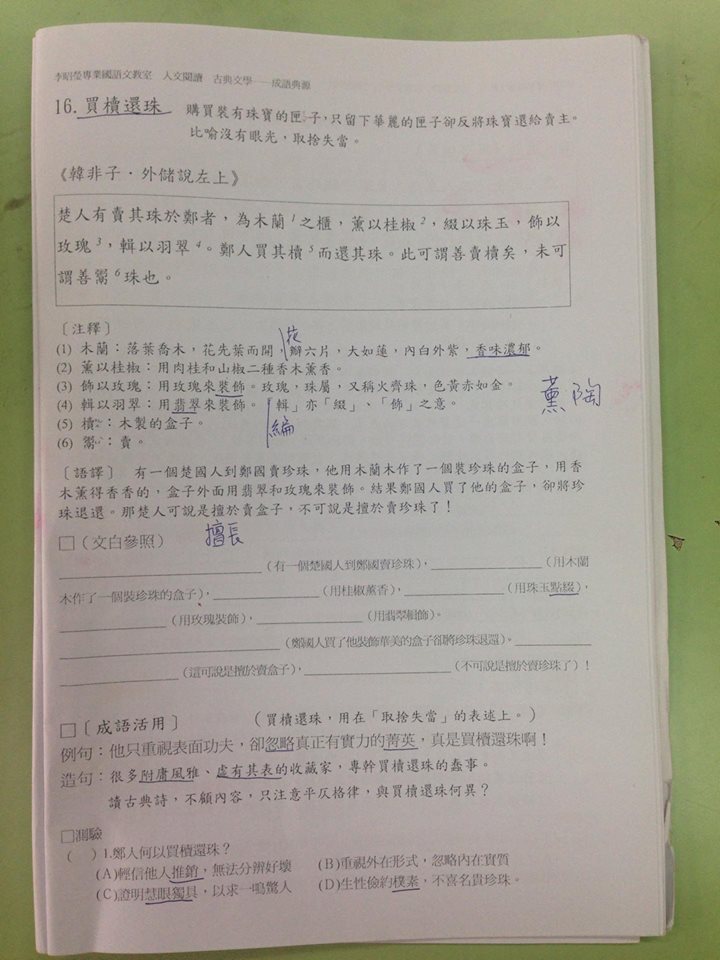 李昭瑩專業國語文教室　人文閱讀　古典文學——成語典源
16. 買櫝還珠　購買裝有珠寶的匣子，只留下華麗的匣子卻反將珠寶還給賣主。
比喻沒有眼光，取捨失當。
《韓非子．外儲說左上》
楚人有賣其珠於鄭者，為木蘭1之櫃，薰以桂椒2，綴以珠玉，飾以
玫瑰3，輯以羽翠4。鄭人買其櫝5而還其珠。此可謂善賣櫝矣，未可
謂善鬻6珠也。
〔注釋〕
花
(1) 木蘭：落葉喬木，花先葉而開，瓣六片，大如蓮，內白外紫，香味濃郁。
(2) 薰以桂椒：用肉桂和山椒二種香木薰香。
(3) 飾以玫瑰：用玫瑰來裝飾。玫瑰，珠屬，又稱火齊珠，色黃赤如金。
薰陶
(4) 輯以羽翠：用翡翠來裝飾。「輯」亦「綴」、「飾」之意。
編
(5) 櫝：木製的盒子。
(6) 鬻：賣。
〔語譯〕　有一個楚國人到鄭國賣珍珠，他用木蘭木作了一個裝珍珠的盒子，用香
木薰得香香的，盒子外面用翡翠和玫瑰來裝飾。結果鄭國人買了他的盒子，卻將珍
珠退還。那楚人可說是擅於賣盒子，不可說是擅於賣珍珠了！
擅長
□（文白參照）
（有一個楚國人到鄭國賣珍珠），（用木蘭
木作了一個裝珍珠的盒子），（用桂椒薰香），（用珠玉點綴），
（用玫瑰裝飾），（用翡翠輯飾）。
（鄭國人買了他裝飾華美的盒子卻將珍珠退還）。
（這可說是擅於賣盒子），（不可說是擅於賣珍珠了）！
□〔成語活用〕　（買櫝還珠，用在「取捨失當」的表述上。）
例句：他只重視表面功夫，卻忽略真正有實力的菁英，真是買櫝還珠啊！
造句：很多附庸風雅、虛有其表的收藏家，專幹買櫝還珠的蠢事。
讀古典詩，不顧內容，只注意平仄格律，與買櫝還珠何異？
□測驗
（　）1.鄭人何以買櫝還珠？
(A)輕信他人推銷，無法分辨好壞　(B)重視外在形式，忽略內在實質
(C)證明慧眼獨具，以求一鳴驚人　(D)生性儉約樸素，不喜名貴珍珠。